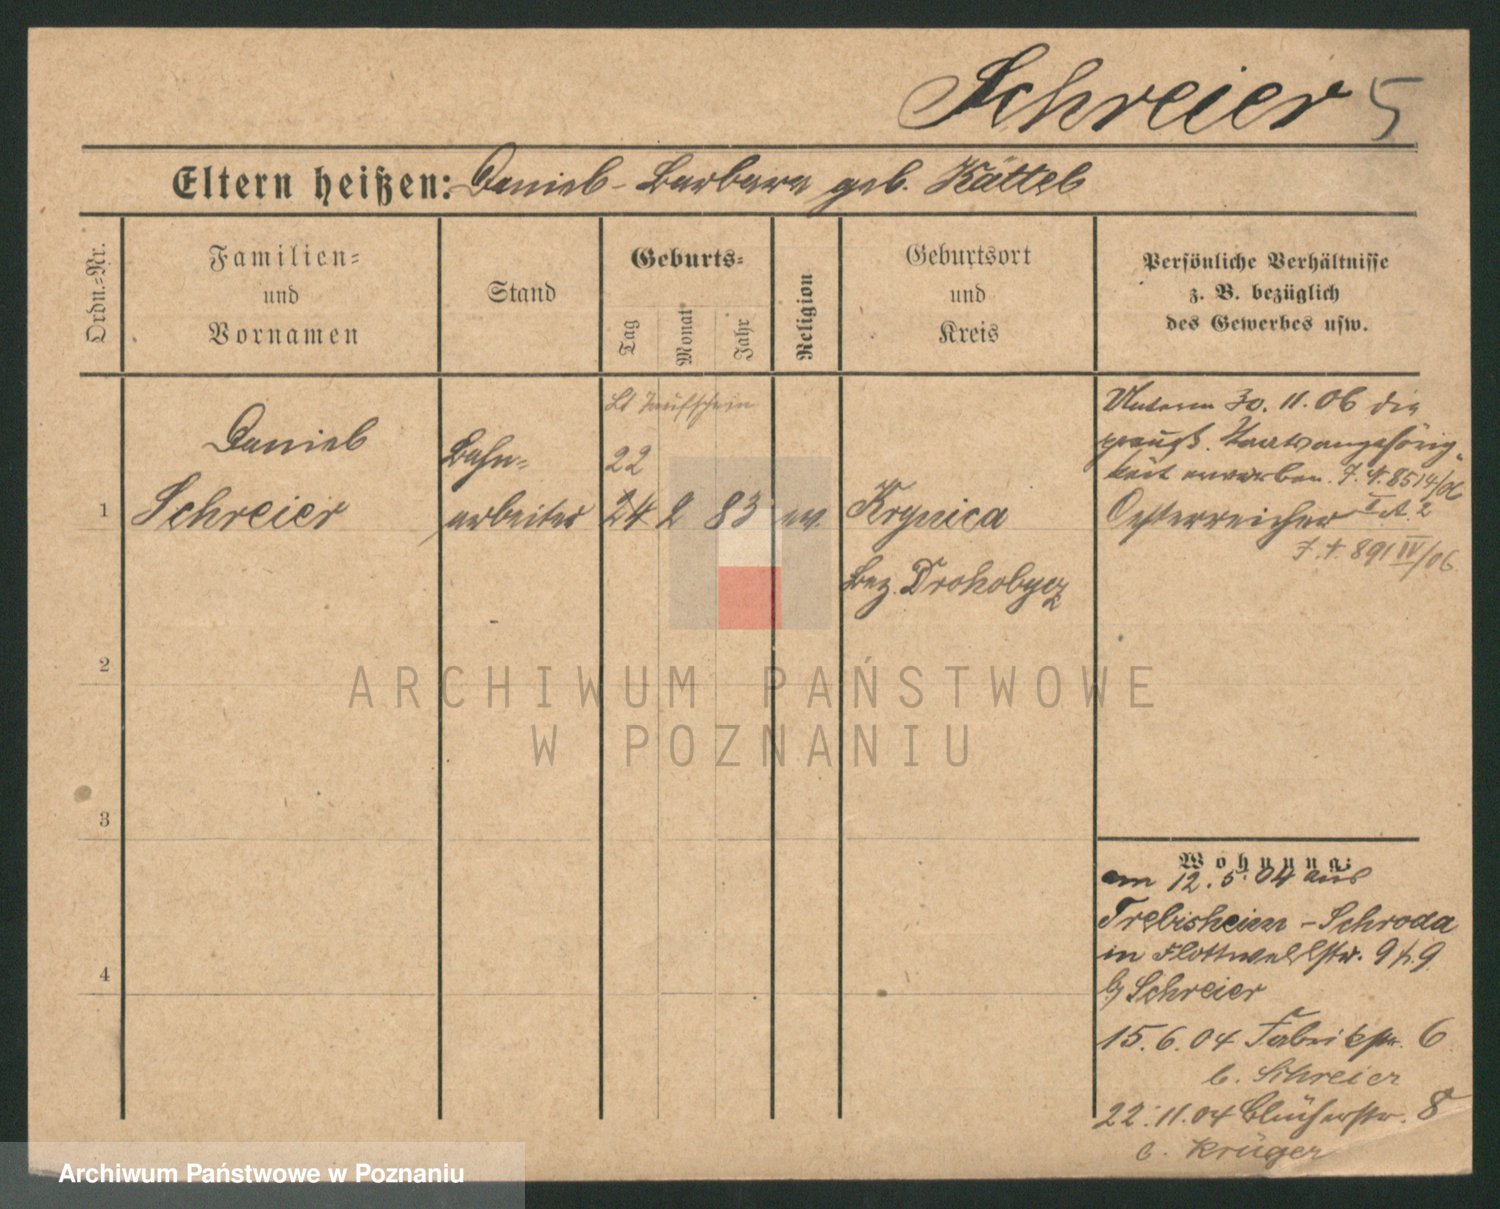 Schreier 5
Eltern heißen: Daniel - Barbara geb. Kättel
Ordn.=Nr.
Familien=
und
Vornamen
Stand
Geburts=
Tag
Monat
Jahr
Religion
Geburtsort
und
Kreis
Persönliche Verhältnisse
z. B. bezüglich
des Gewerbes usw.
Lt Taufschein
1
Daniel
Schreier
Bahn=
arbeiter
22
24 2 83 ev.
Krynica
Bez. Drohobycz
Unterm 30. 11. 06 die
preuß. Staatsangehörig=
keit erworben. J. N. 8514/06
I A. 2
Oesterreicher
J. N. 891 IV/06
2
3
4
Wohnung:
am 12. 5. 04 aus
Trebisheim - Schroda
in Flottwellstr. 9 h. 9
b/ Schreier
15. 6. 04 Fabrikstr. 6
b. Schreier
22. 11. 04 Blücherstr. 8
b. Krüger
ARCHIWUM PAŃSTWOWE
W POZNANIU
Archiwum Państwowe w Poznaniu